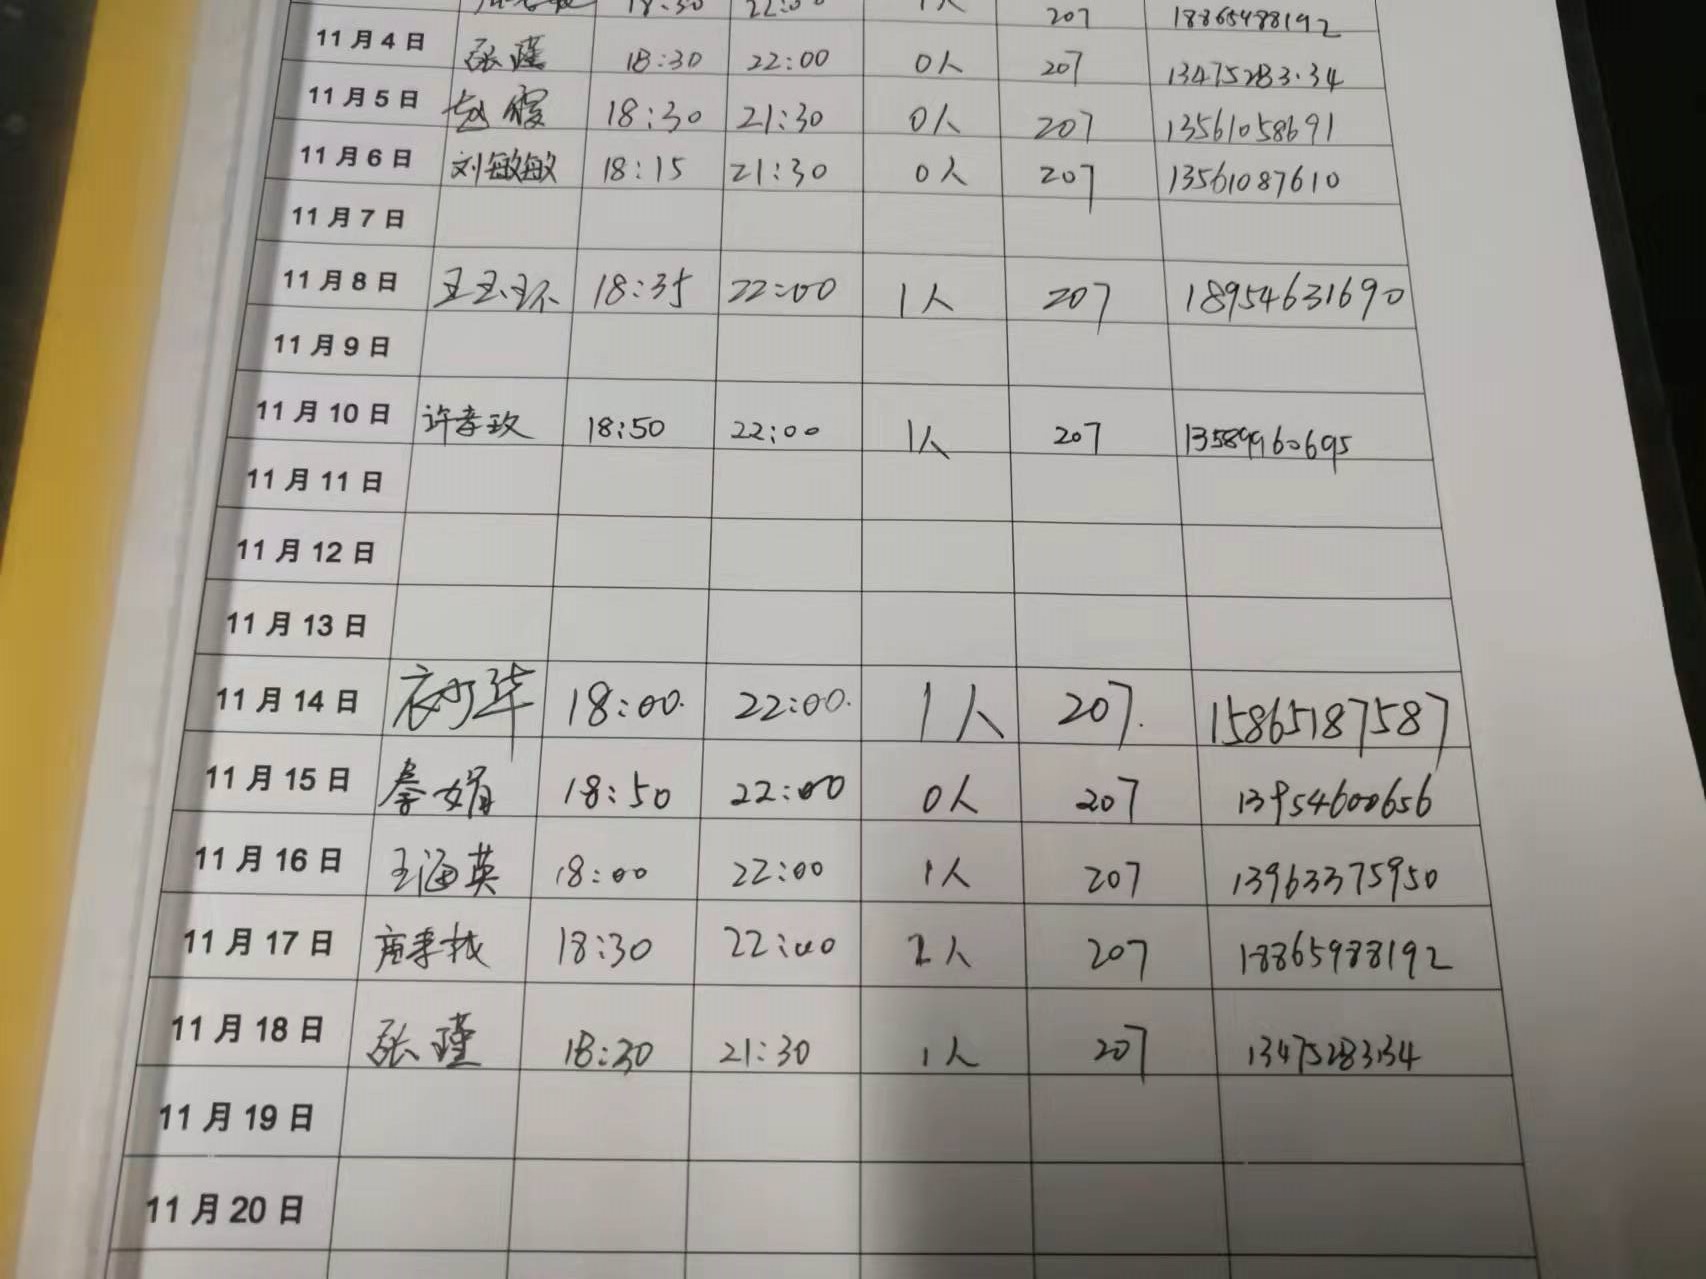 18:30 22:00 1人 207 18865988192
11月4日 张瑾 18:30 22:00 0人 207 13475283134
11月5日 赵霞 18:30 21:30 0人 207 13561058691
11月6日 刘敏敏 18:15 21:30 0人 207 13561087610
11月7日
11月8日 王玉环 18:35 22:00 1人 207 18954631690
11月9日
11月10日 许孝玫 18:50 22:00 1人 207 13589960695
11月11日
11月12日
11月13日
11月14日 18:00. 22:00. 1人 207. 15865187587
11月15日 秦娟 18:50 22:00 0人 207 13954600656
11月16日 王海英 18:00 22:00 1人 207 13963375950
11月17日 18:30 22:00 2人 207 18865988192
11月18日 张瑾 18:30 21:30 1人 207 13475283134
11月19日
11月20日